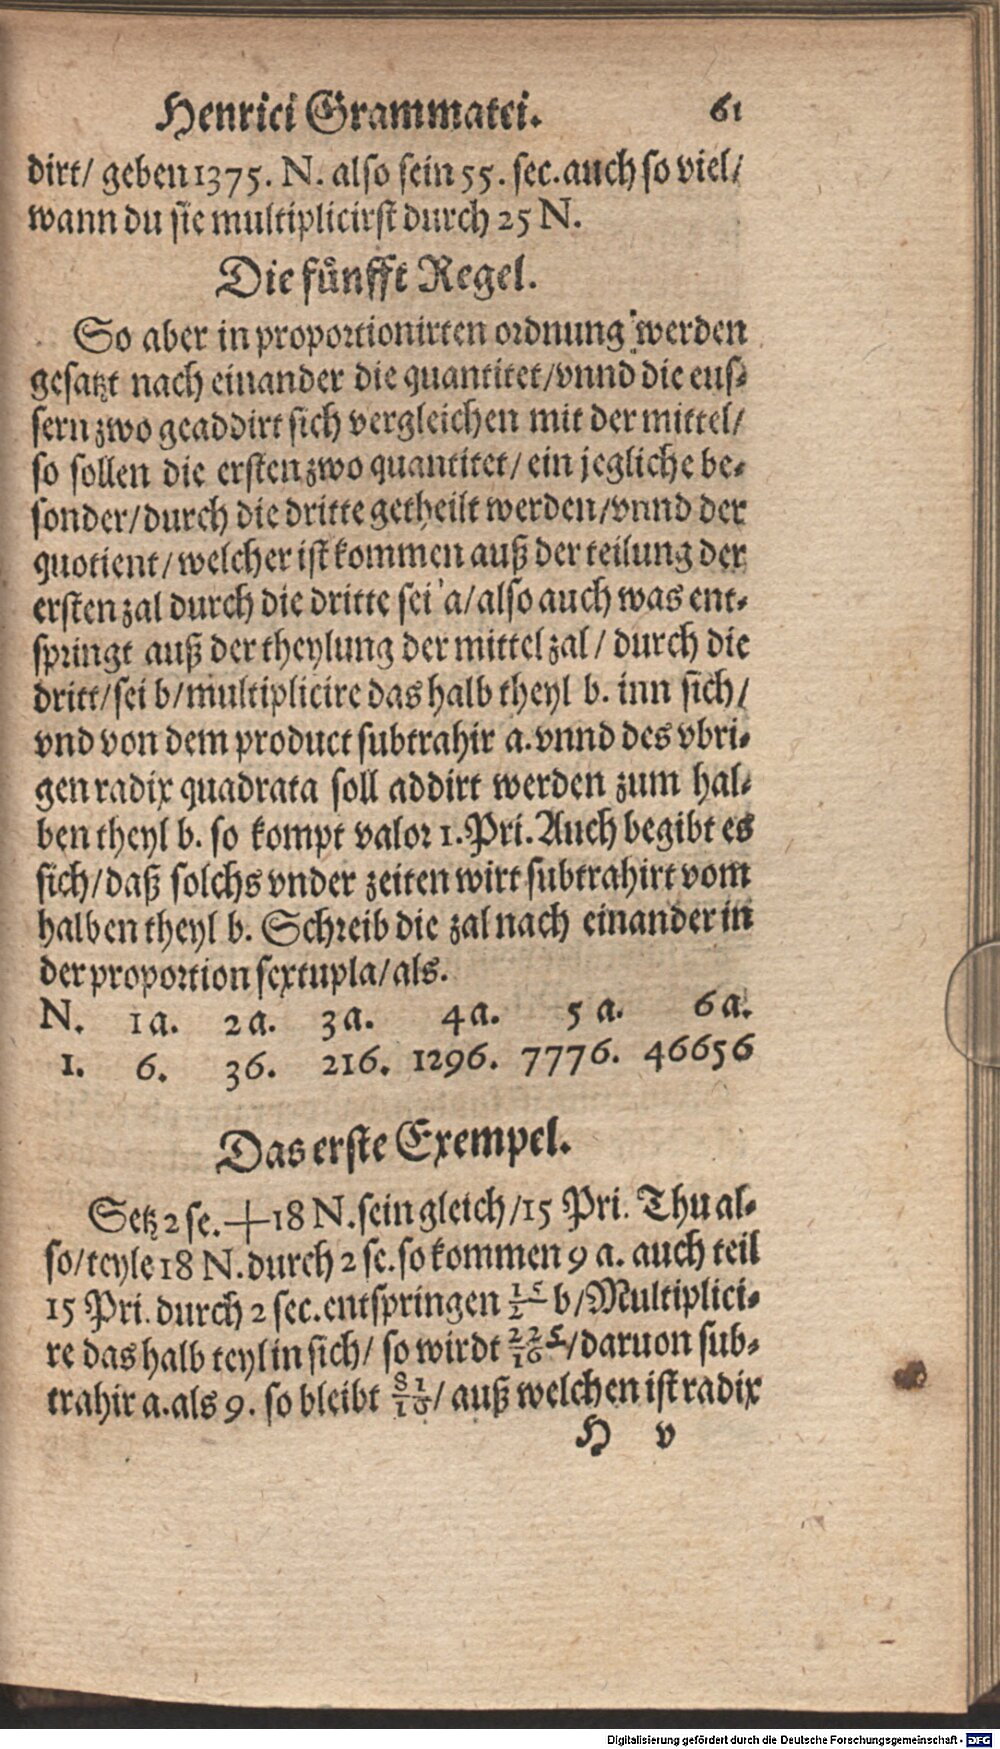 Henrici Grammatei. 61
dirt/ geben 1375. N. also sein 55. sec. auch so viel/
wann du sie multiplicirst durch 25 N.
Die fünfft Regel.
So aber in proportionirten ordnung werden
gesatzt nach einander die quantitet/vnnd die eus-
sern zwo geaddirt sich vergleichen mit der mittel/
so sollen die ersten zwo quantitet/ ein jegliche be-
sonder/durch die dritte getheilt werden/vnnd der
quotient/welcher ist kommen auß der teilung der
ersten zal durch die dritte sei a/also auch was ent-
springt auß der theylung der mittel zal/ durch die
dritt/sei b/multiplicire das halb theyl b. inn sich/
vnd von dem product subtrahir a. vnnd des vbri-
gen radix quadrata soll addirt werden zum hal-
ben theyl b. so kompt valor 1. Pri. Auch begibt es
sich/daß solchs vnder zeiten wirt subtrahirt vom
halben theyl b. Schreib die zal nach einander in
der proportion sextupla/als.
N. 1a. 2a. 3a. 4a. 5a. 6a.
1. 6. 36. 216. 1296. 7776. 46656
Das erste Exempel.
Setz 2 se. + 18 N. sein gleich/15 Pri. Thu al-
so/teyle 18 N. durch 2 se. so kommen 9 a. auch teil
15 Pri. durch 2 sec. entspringen 15/2 b/Multiplici-
re das halb teyl in sich/ so wirdt 225/16/daruon sub-
trahir a. als 9. so bleibt 81/16/ auß welchen ist radix
H v
Digitalisierung gefördert durch die Deutsche Forschungsgemeinschaft - DFG